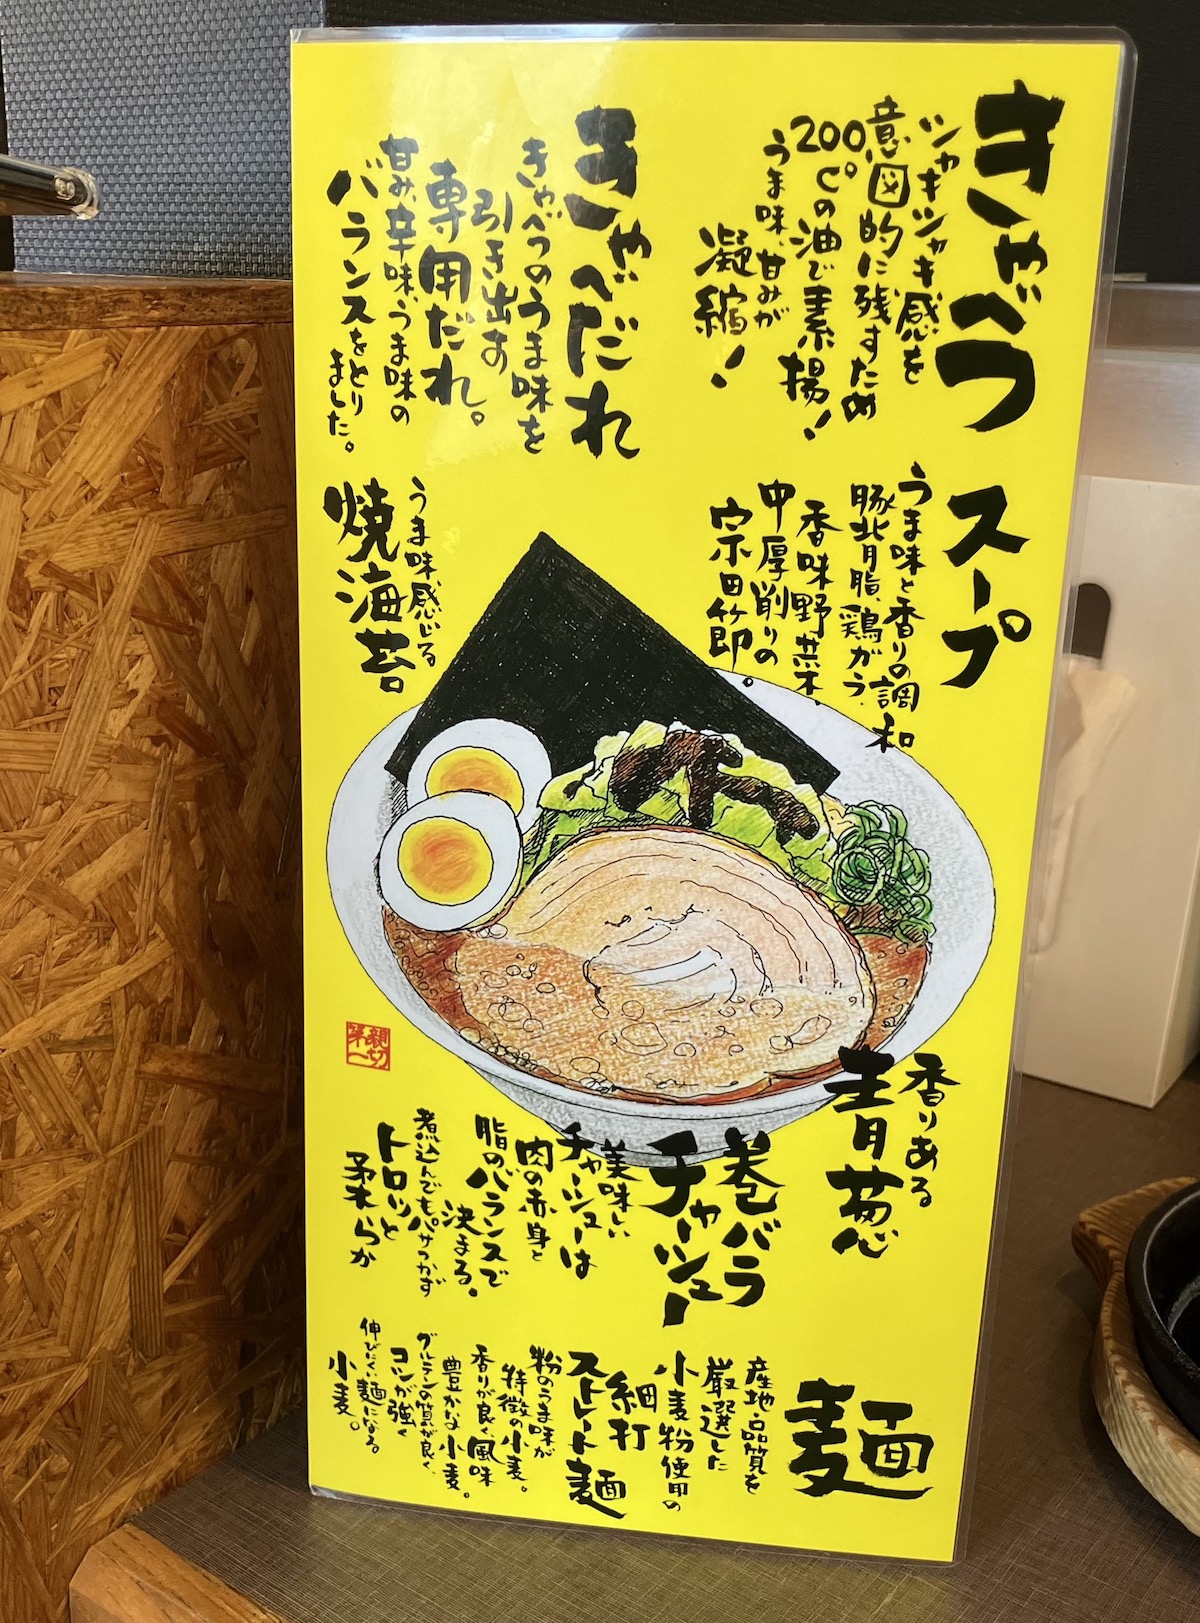 きゃべつ
シャキシャキ感を
意図的に残すため
200℃の油で素揚!
うま味、甘みが
凝縮!
きゃべだれ
きゃべつのうま味を
引き出す
専用だれ。
甘み、辛味、うま味の
バランスをとり
ました。
スープ
うま味と香りの調和
豚背脂、鶏がら、
香味野菜、
中厚削りの
宗田節。
うま味感じる
焼海苔
香りある
青葱
巻バラ
チャーシュー
美味しい
チャーシューは
肉の赤身と
脂のバランスで
決まる。
煮込んでもパサつかず
トロッと
柔らか
麺
産地・品質を
厳選した
小麦粉使用の
細打
ストレート麺
粉のうま味が
特徴の小麦。
香りが良く、風味
豊かな小麦。
グルテンの質が良く、
コシが強く
伸びにくい麺になる。
小麦。
親切
第一